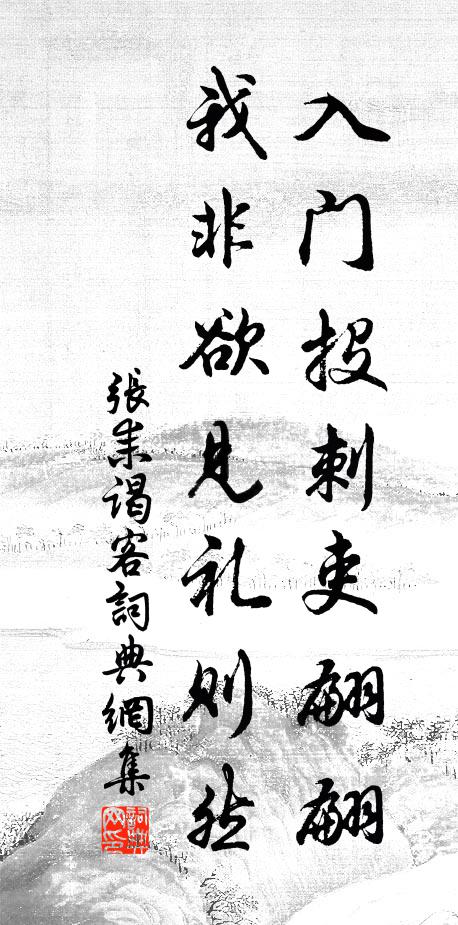 入门投刺吏翩翩
我非欲見礼则然
張耒谒客詞典網集